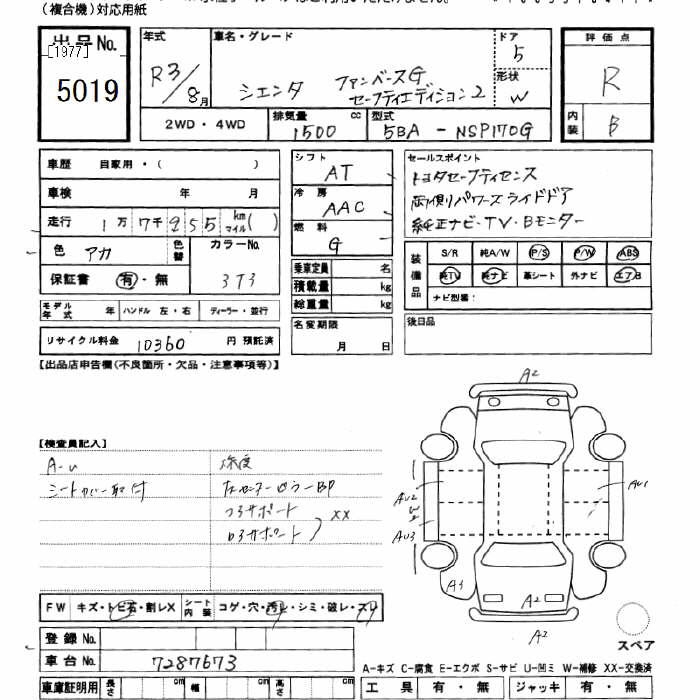 (複合機)対応用紙
出品No. 年式 車名・グレード ドア 評価点
[1977]
5019 R3/8月 シエンタ ファンベースG セーフティエディション2 5 形状 W R
2WD・4WD 排気量 1500 cc 型式 5BA - NSP170G 内装 B
車歴 自家用・( )
車検 年 月
走行 1万7千955 km マイル( )
色 アカ 色替 カラーNo. 3T3
保証書 有・無
シフト AT
冷房 AAC
燃料 G
乗車定員 名
積載量 kg
総重量 kg
セールスポイント
トヨタセーフティセンス
両側パワースライドドア
純正ナビ・TV・Bモニター
装備品 S/R 純A/W P/S P/W ABS
純TV 純ナビ 革シート 外ナビ エアB
ナビ型番:
モデル年式 年 ハンドル 左・右 ディーラー・並行
名変期限 月 日
後日品
リサイクル料金 10360 円 預託済
【出品店申告欄(不良箇所・欠品・注意事項等)】
【検査員記入】
A-u
シートカバー取付
深度
左センターピラーBP
コアサポート
ロアサポート XX
A2
AU2
W2
AU3
AU1
A3
A2
A2
スペア
FW キズ・トビ石・割レX シート内装 コゲ・穴・汚レ・シミ・破レ・スリ
登録No.
車台No. 7287673
A-キズ C-腐食 E-エクボ S-サビ U-凹ミ W-補修 XX-交換済
車庫証明用 長さ cm 幅 cm 高さ cm 工具 有・無 ジャッキ 有・無